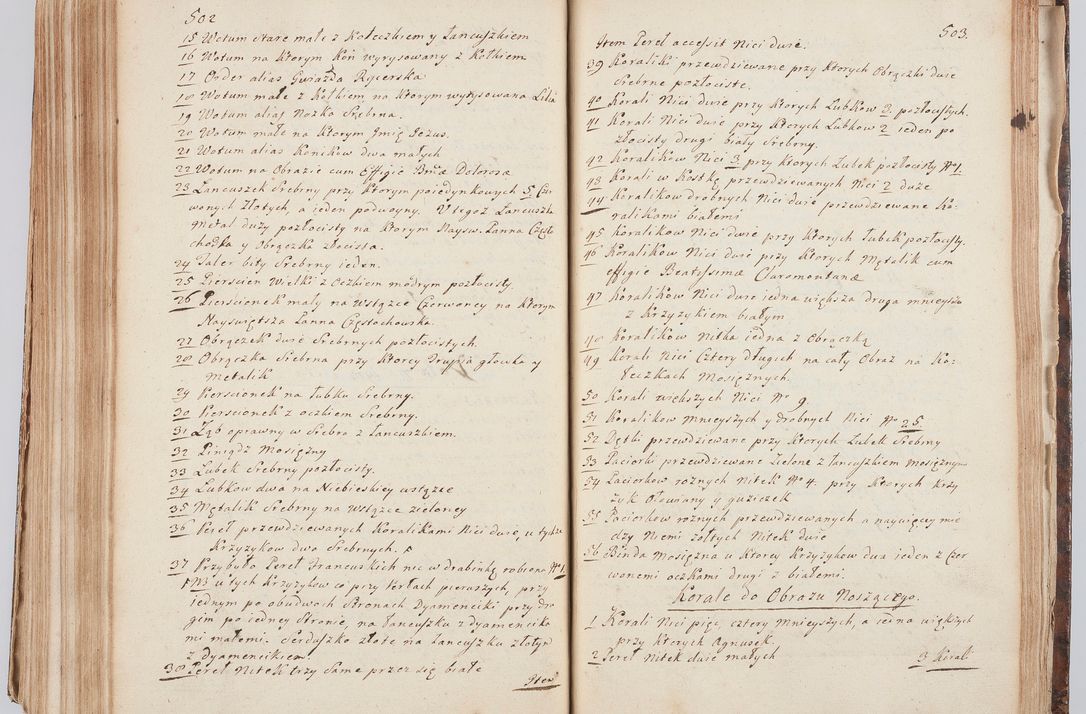 502
15 Wotum stare małe z Koteczkiem y Łancuszkiem
16 Wotum na Którym Koń wyrysowany z Kółkiem
17 Order alias Gwiazda Rycerska
18 Wotum małe z Kółkiem na Którym wyrysowana Lilia
19 Wotum alias Nożka Srebrna.
20 Wotum małe na Którym Jmię Jezus.
21 Wotum alias Koników dwa małych
22 Wotum na Obrazie cum Effigie Bmæ Dolorosæ
23 Łancuszek Srebrny przy Którym poiedynkowych 5 Czer
wonych Złotych, a ieden podwoyny. U tegoż Łancuszka
metal duży pozłocisty na Którym Nayśw. Panna Często
choska y Obrączka złocista.
24 Taler bity Srebrny ieden.
25 Pierscien Wielki z Oczkiem modrym pozłocisty
26 Pierscionek mały na Wstązce Czerwoney na Którym
Nayswiętsza Panna Częstochowska.
27 Obrączek dwie Srebrnych pozłocistych.
28 Obrączka Srebrna przy Ktorey Trupia głowka y
Metalik
29 Pierscionek na łubku Srebrny.
30 Pierscionek z oczkiem Srebrny.
31 Ząb oprawny w Srebro z Łancuszkiem.
32 Pieniądz Mosiężny
33 Lubek Srebrny pozłocisty.
34 Lubkow dwa na Niebieskiey wstązce
35 Mętalik Srebrny na wstązce zieloney
36 Pereł przewdziewanych Koralikami Nici dwie, u tychże
Krzyżykow dwa Srebrnych.
37 Przybyło Pereł Francuskich nic w drabinkę robiona Nº 1.
NB u tych Krzyżykow co przy Perłach pierwszych, przy
iednym po obudwoch Stronach Dyamenciki przy dru
gim po iedney Stronie, na Łancuszku z Dyamencika
mi małemi. Serduszko złote na Łancuszku złotym
z Dyamencikiem
38 Pereł Nitek trzy Same przez się białe
Item
503
Item Pereł accessit Nici dwie.
39 Koraliki przewdziewane przy Ktorych Obrączki dwie
Srebrne pozłociste.
40 Korali Nici dwie przy Ktorych Lubkow 3. pozłocistych.
41 Korali Nici dwie przy Ktorych Lubkow 2 ieden po
złocisty drugi biały Srebrny.
42 Koralików Nici 3 przy ktorych Lubek pozłocisty Nº 1.
43 Korali w Kostkę przewdziewanych Nici 2 duże
44 Koralikow drobnych Nici dwie przewdziewane Ko
ralikami białemi
45 Koralikow Nici dwie przy Ktorych Lubek pozłocisty.
46 Koralikow Nici dwie przy Ktorych Mętalik cum
effigie Beatissimæ Claromontanæ
47 Koralikow Nici dwie iedna większa druga mnieysza
z Krzyżykiem białym
48 Koralikow Nitka iedna z Obrączką
49 Korali Nici Cztery długich na cały Obraz na Ko
łeczkach Mosiężnych.
50 Korali większych Nici Nº 9.
51 Koralikow Mnieyszych y drobnych Nici Nº 25
52 Dętki przewdziewane przy Ktorych Lubek Srebrny
53 Paciorki przewdziewane Zielone z łancuszkiem mosiężnym
54 Paciorkow rożnych Nitek Nº 4. przy Ktorych krzy
żyk Ołowiany y guziczek
55 Paciorkow rożnych przewdziewanych a naywięcey mie
dzy Niemi żółtych Nitek dwie
56 Binda Mosiężna u Ktorey Krzyżykow dwa ieden z Czer
wonemi oczkami drugi z białemi.
Korale do Obrazu Noszącego.
1 Korali Nici pięć, cztery Mnieyszych, a iedna większych
przy Ktorych Agnusek.
2 Pereł Nitek dwie małych
3 Korali